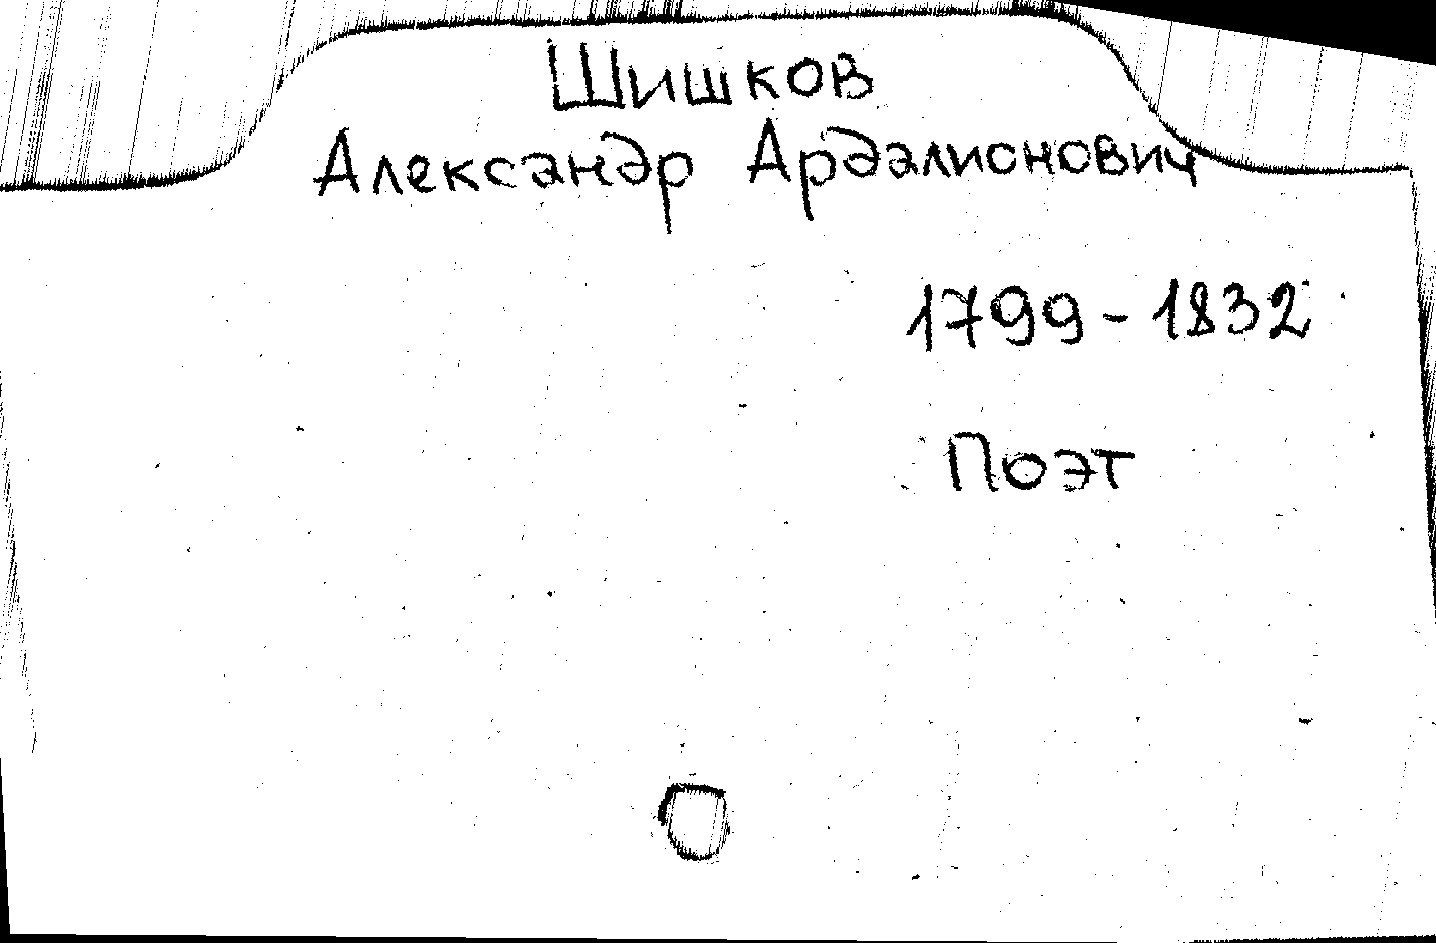 Шишков
Александр Ардалионович
1799-1832
Поэт